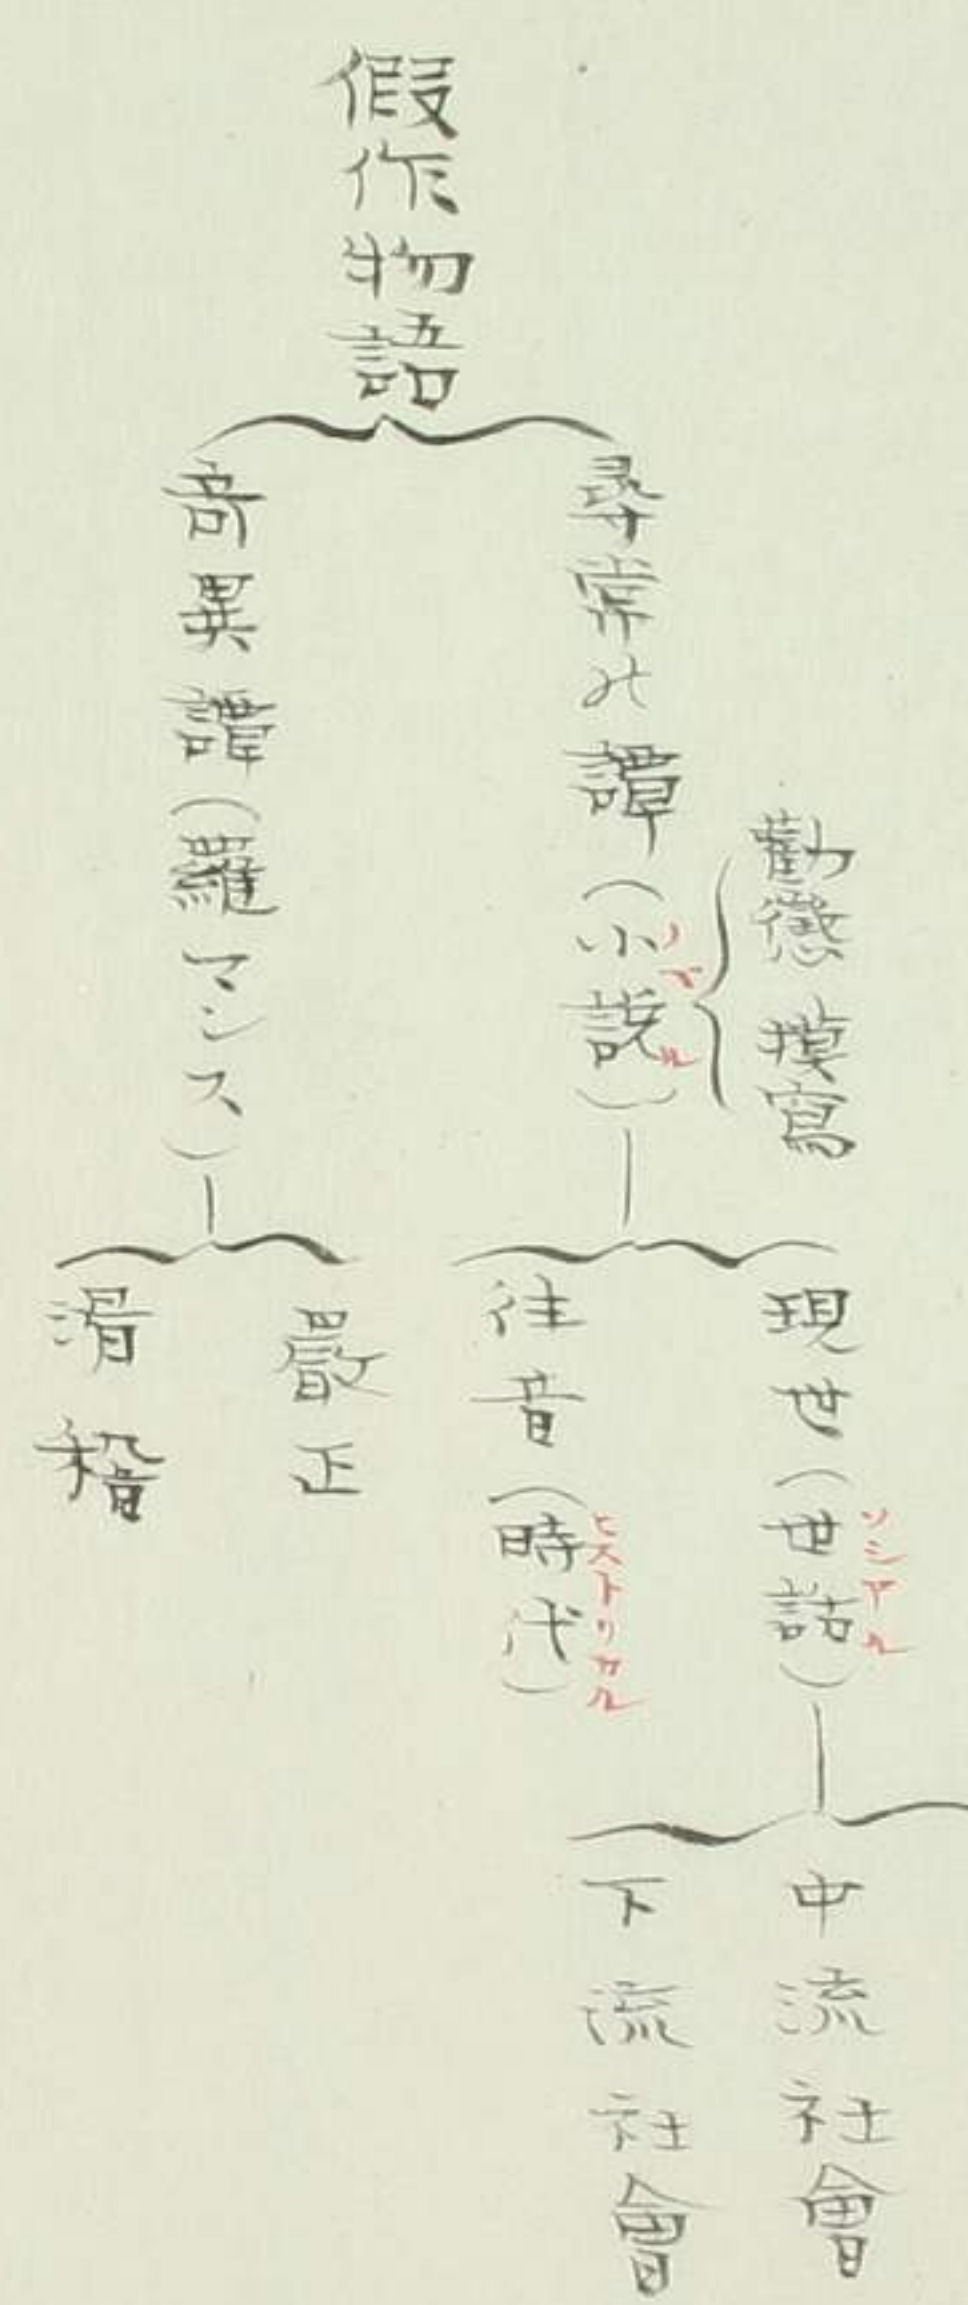 假作物語
尋常の譚(小説)
ノベル
勸懲
摸寫
現世(世話)
ソシアル
中流社會
下流社會
往昔(時代)
ヒストリカル
奇異譚(羅マンス)
嚴正
滑稽